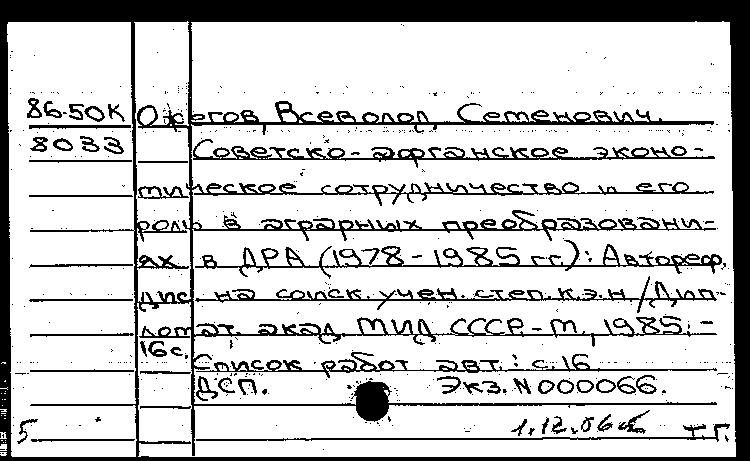 86-50К Офегов, Всеволод Семенович.
8033 Советско-афганское эконо-
мическое сотрудничество и его
роль в аграрных преобразовани-
ях в ДРА (1978-1985 гг.): Автореф.
дис. на соиск. учен. степ. к.э.н/Дип-
ломат. акад. МИД СССР.-М., 1985.-
16 с.
Список работ авт.: с.16
ДСП. Экз.N000066.
5 1.12.86 Т.Г.